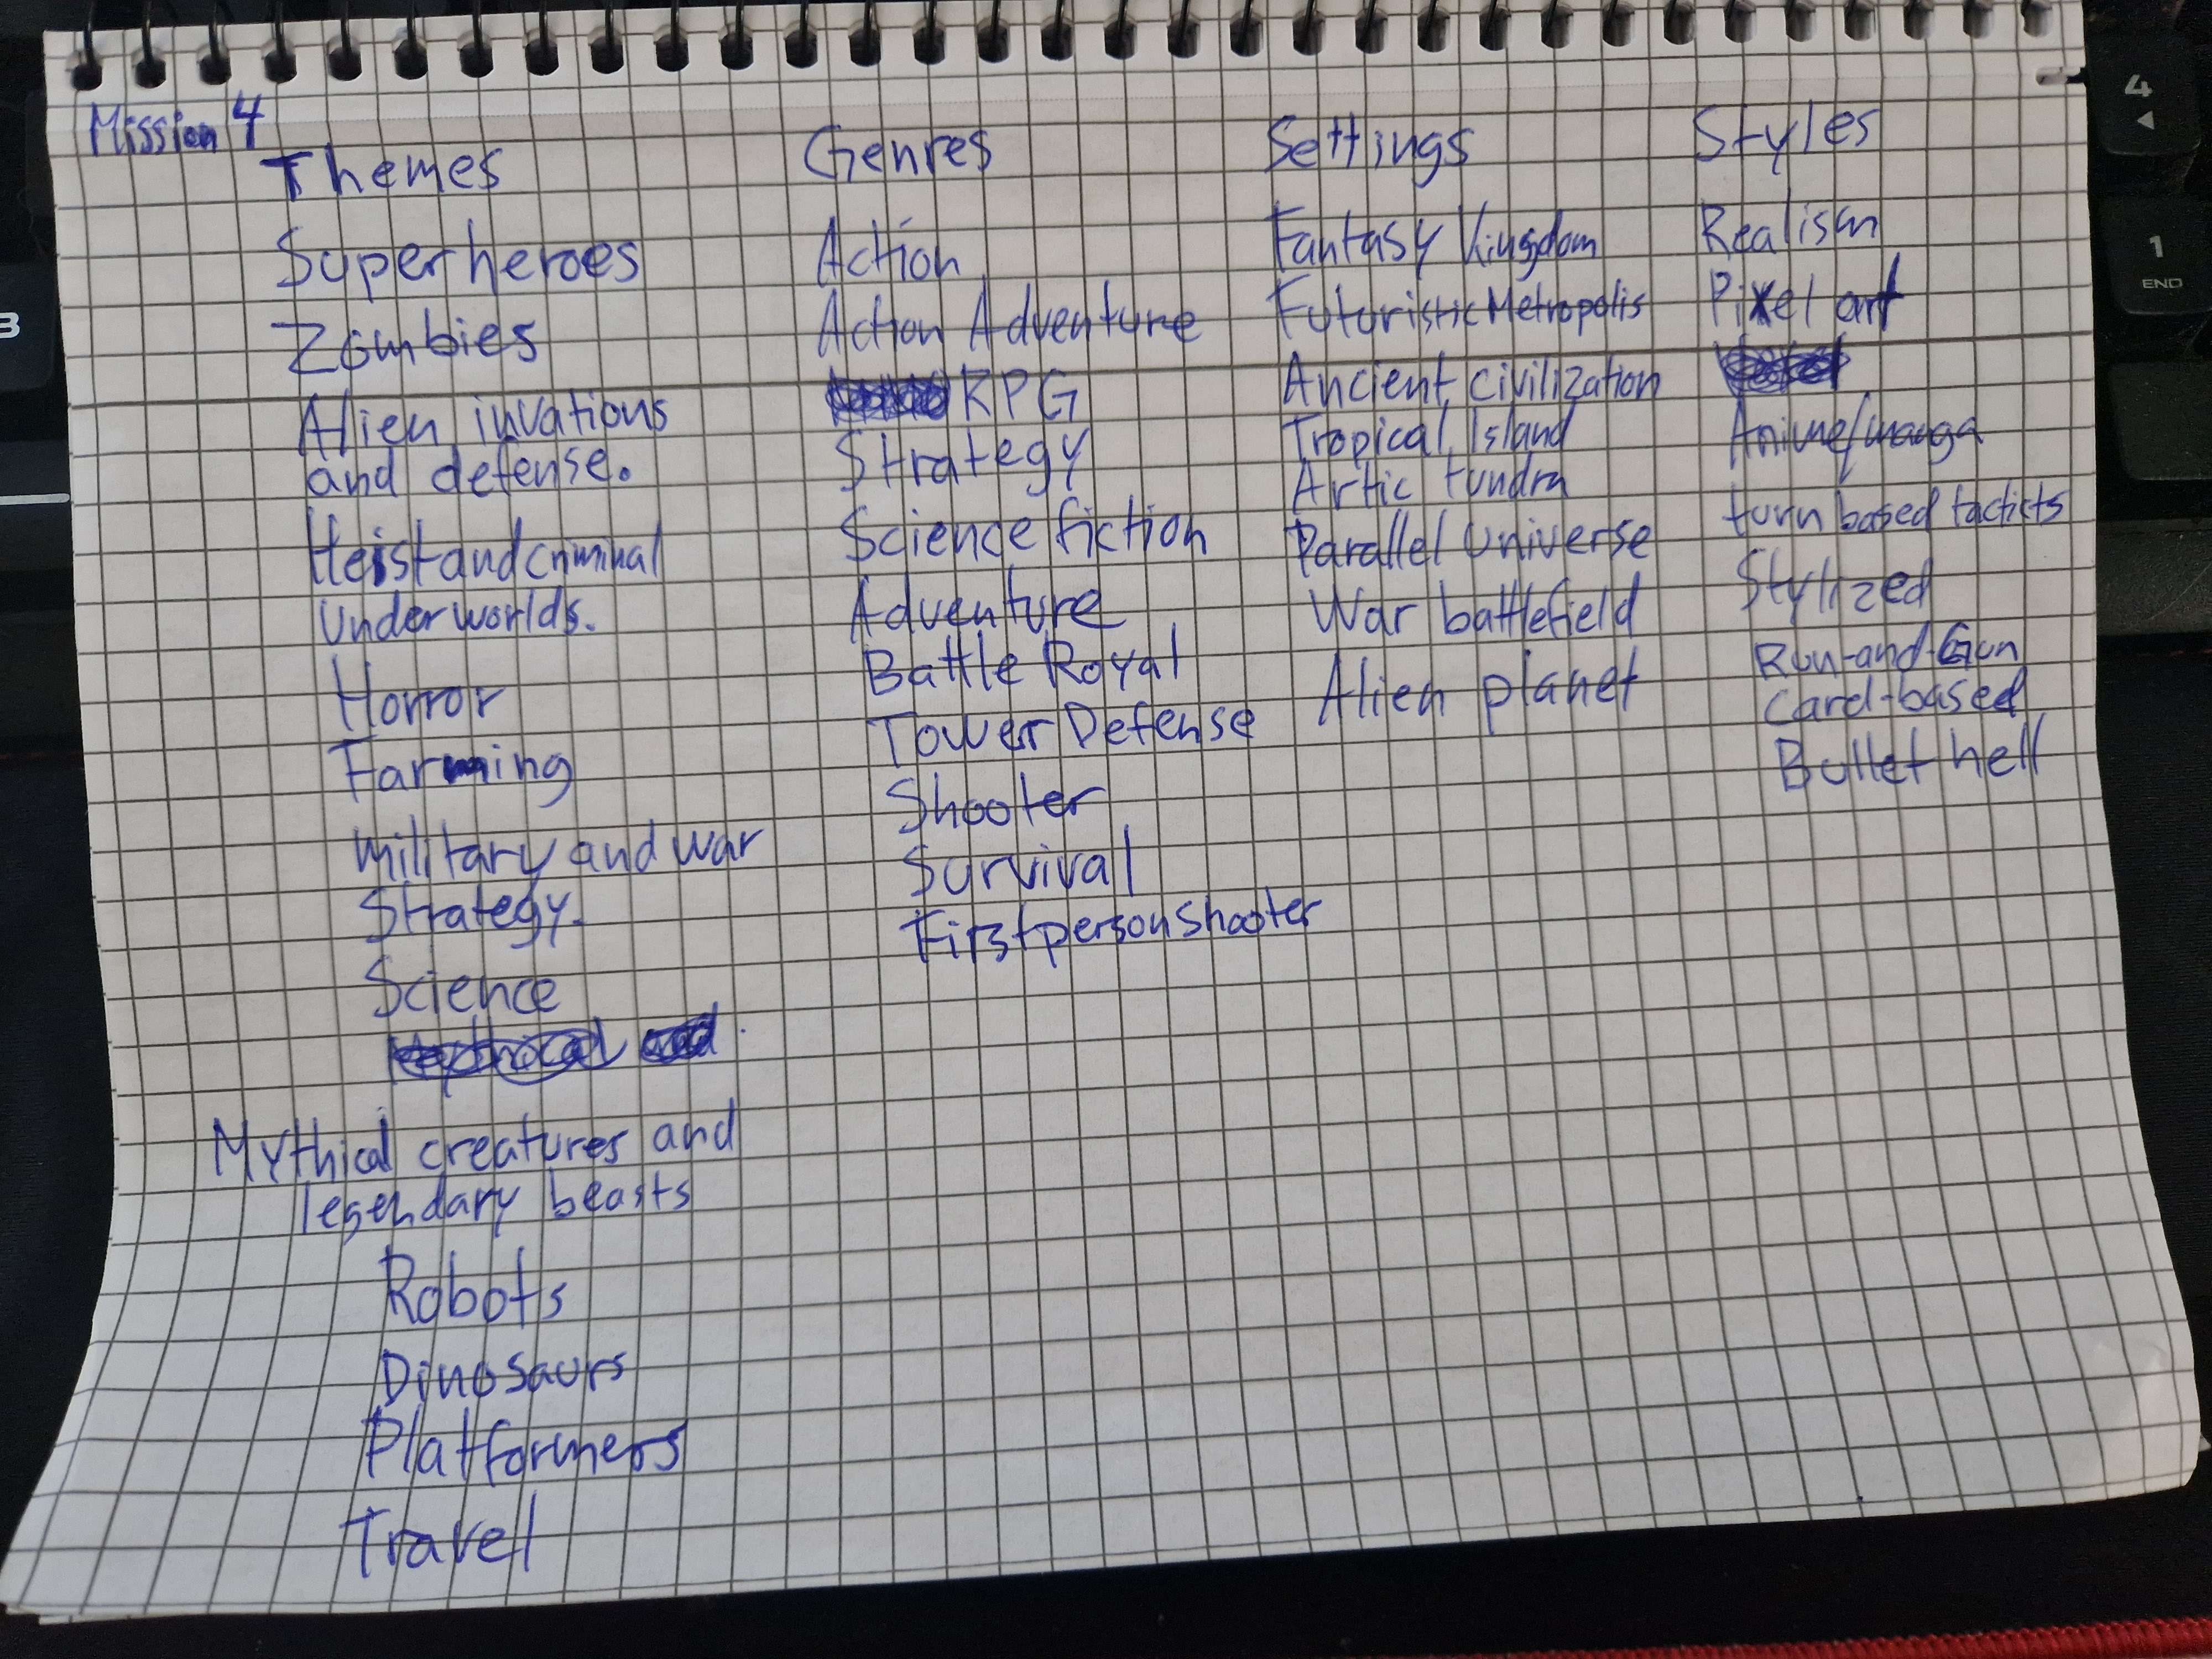 Mission 4
Themes
Superheroes
Zombies
Alien invations
and defense.
Heist and criminal
Underworlds.
Horror
Farming
military and war
Strategy.
Science
Mythical creatures and
legendary beasts
Robots
Dinosaurs
Platformers
Travel
Genres
Action
Action Adventure
RPG
Strategy
Science fiction
Adventure
Battle Royal
Tower Defense
Shooter
Survival
First person shooter
Settings
Fantasy Kingdom
Futuristic Metropolis
Ancient civilization
Tropical Island
Artic tundra
Parallel Universe
War battlefield
Alien planet
Styles
Realism
Pixel art
Anime/manga
turn based tacticts
Stylized
Run-and-Gun
Card-based
Bullet hell
4
1
END
3